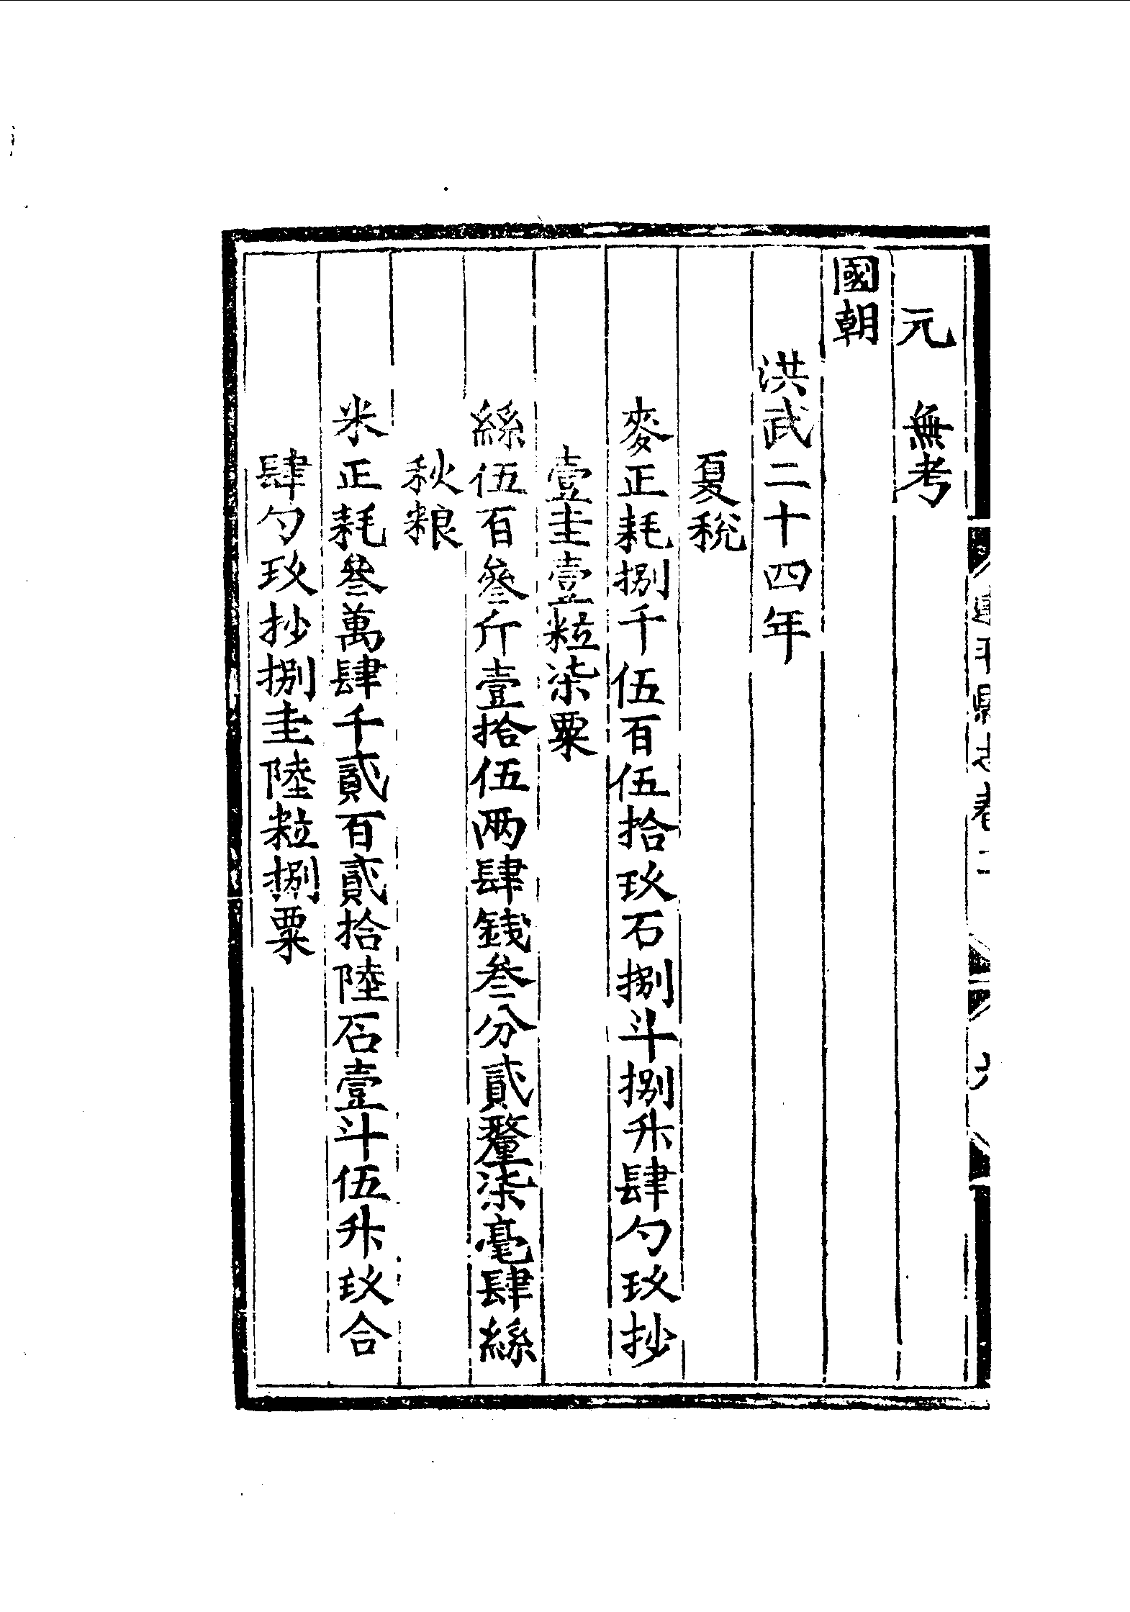 元　無考
國朝
洪武二十四年
夏稅
麥正耗捌千伍百伍拾玖石捌斗捌升肆勺玖抄
壹圭壹粒柒粟
絲伍百叄斤壹拾伍兩肆錢叄分貳釐柒毫肆絲
秋粮
米正耗叄萬肆千貳百貳拾陸石壹斗伍升玖合
肆勺玖抄捌圭陸粒捌粟